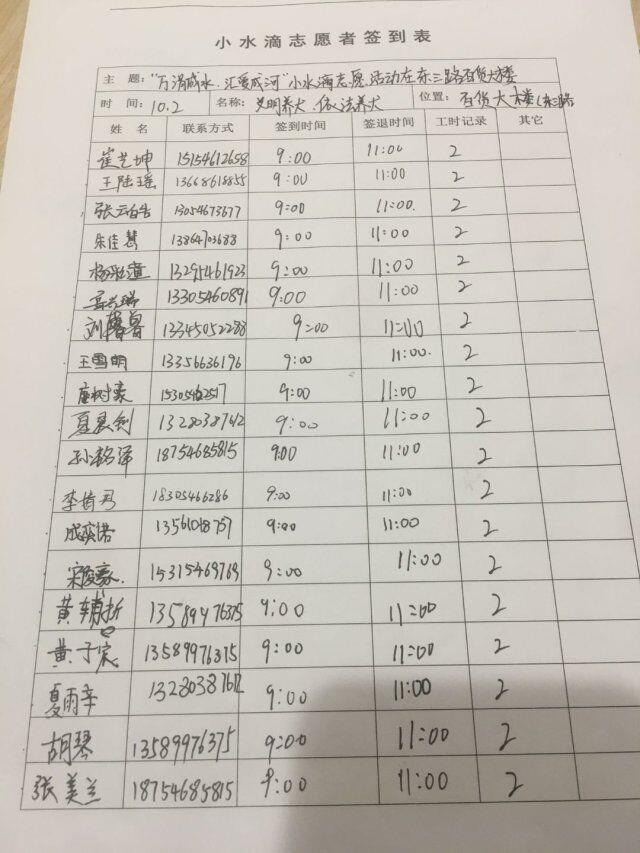 小水滴志愿者签到表
主 题："万涓成水.汇爱成河"小水滴志愿活动在东三路百货大楼
时 间：10.2 名称：文明养犬 依法养犬 位置：百货大楼(东三路
姓 名 联系方式 签到时间 签退时间 工时记录 其它
崔艺坤 15154612658 9:00 11:00 2
王陆瑶 13668618855 9:00 11:00 2
张云皓 13054673677 9:00 11:00. 2
朱佳慧 13864703688 9:00 11:00 2
13295461923 9:00 11:00 2
13305460891 9:00 11:00 2
刘馨蔓 13345052288 9:00 11:00 2
王雪明 13356636196 9:00 11:00. 2
唐树豪 15305462517 9:00 11:00 2
夏晨剑 13280387612 9:00 11:00 2
孙铭泽 18754685815 9:00 11:00 2
李肯丹 18305466286 9:00 11:00 2
成奕诺 13561068757 9:00 11:00 2
宋俊豪. 15315469769 9:00 11:00 2
黄辅哲 13589976375 9:00 11:00 2
黄子宸 13589976375 9:00 11:00 2
夏雨辛 13280387612 9:00 11:00 2
胡琴 13589976375 9:00 11:00 2
张美兰 18754685815 9:00 11:00 2